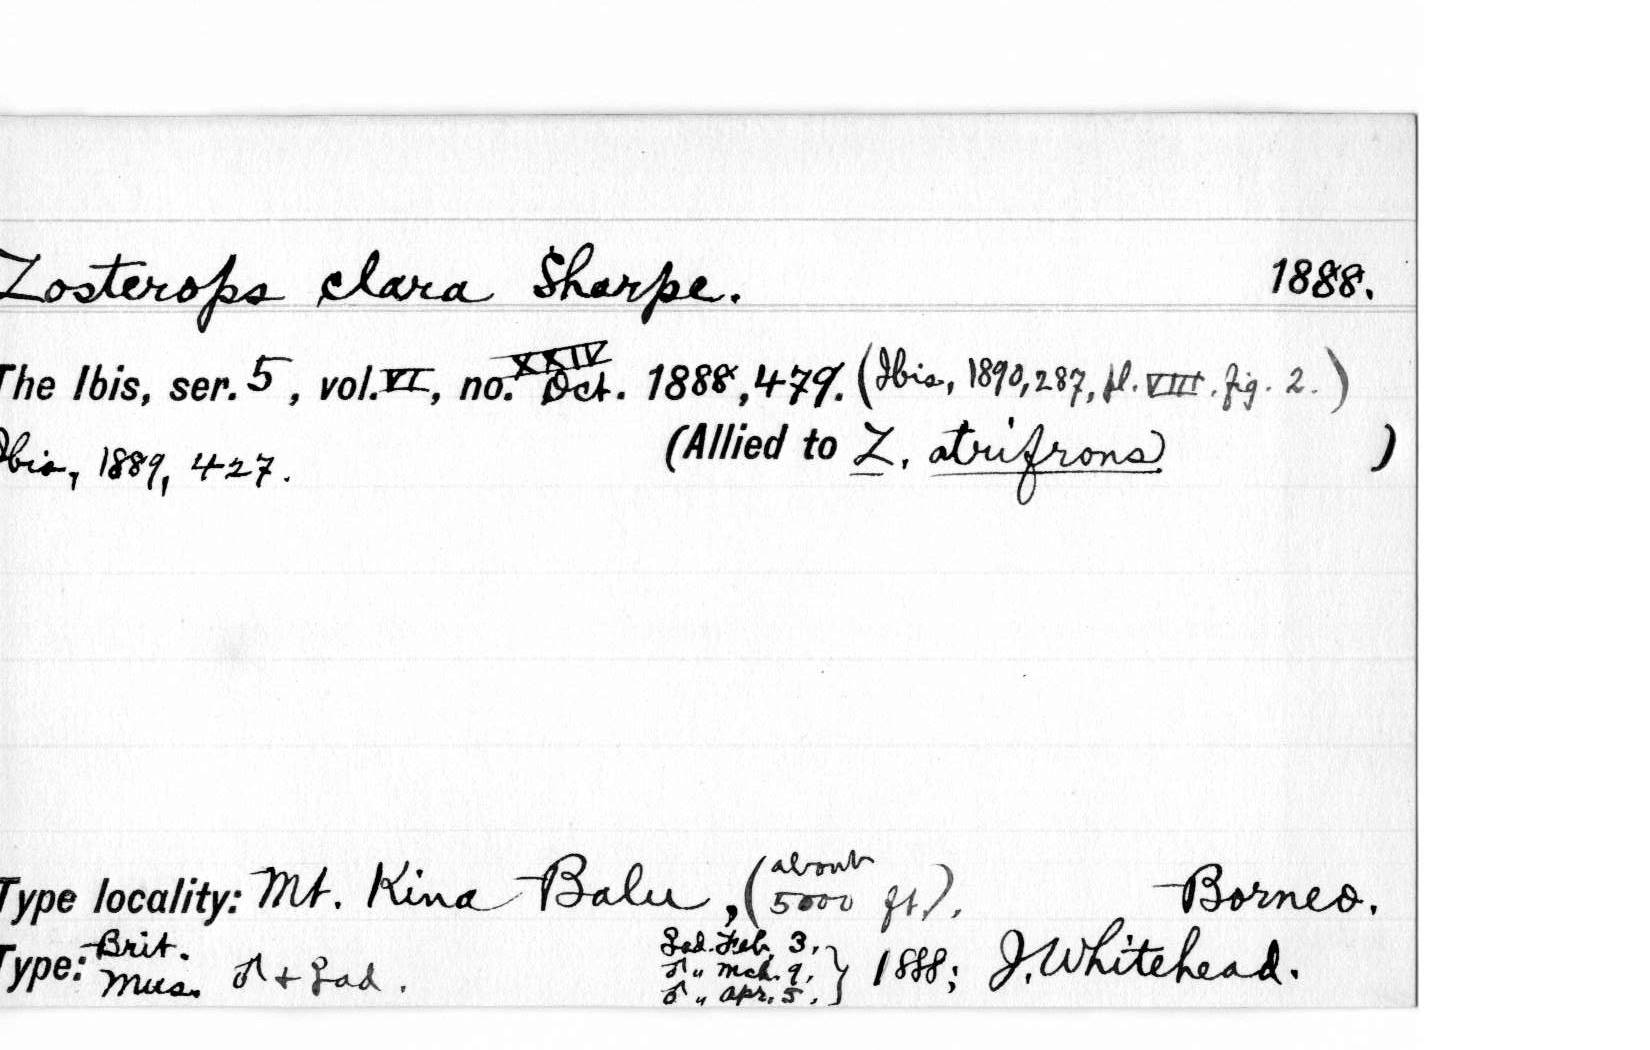 Zosterops clara Sharpe. 1888.
The Ibis, ser. 5, vol. VI, no. XXIV Oct. 1888, 479. (Ibis, 1890, 287, pl. VIII. fig. 2.)
Ibis, 1889, 427. (Allied to Z. atrifrons )
Type locality: Mt. Kina Balu, (about 5000 ft), Borneo.
Type: Brit. Mus. ♂ + ♀ ad. ♀ ad. Feb. 3, ♂ " Mch. 9, ♂ " Apr. 5, } 1888; J. Whitehead.